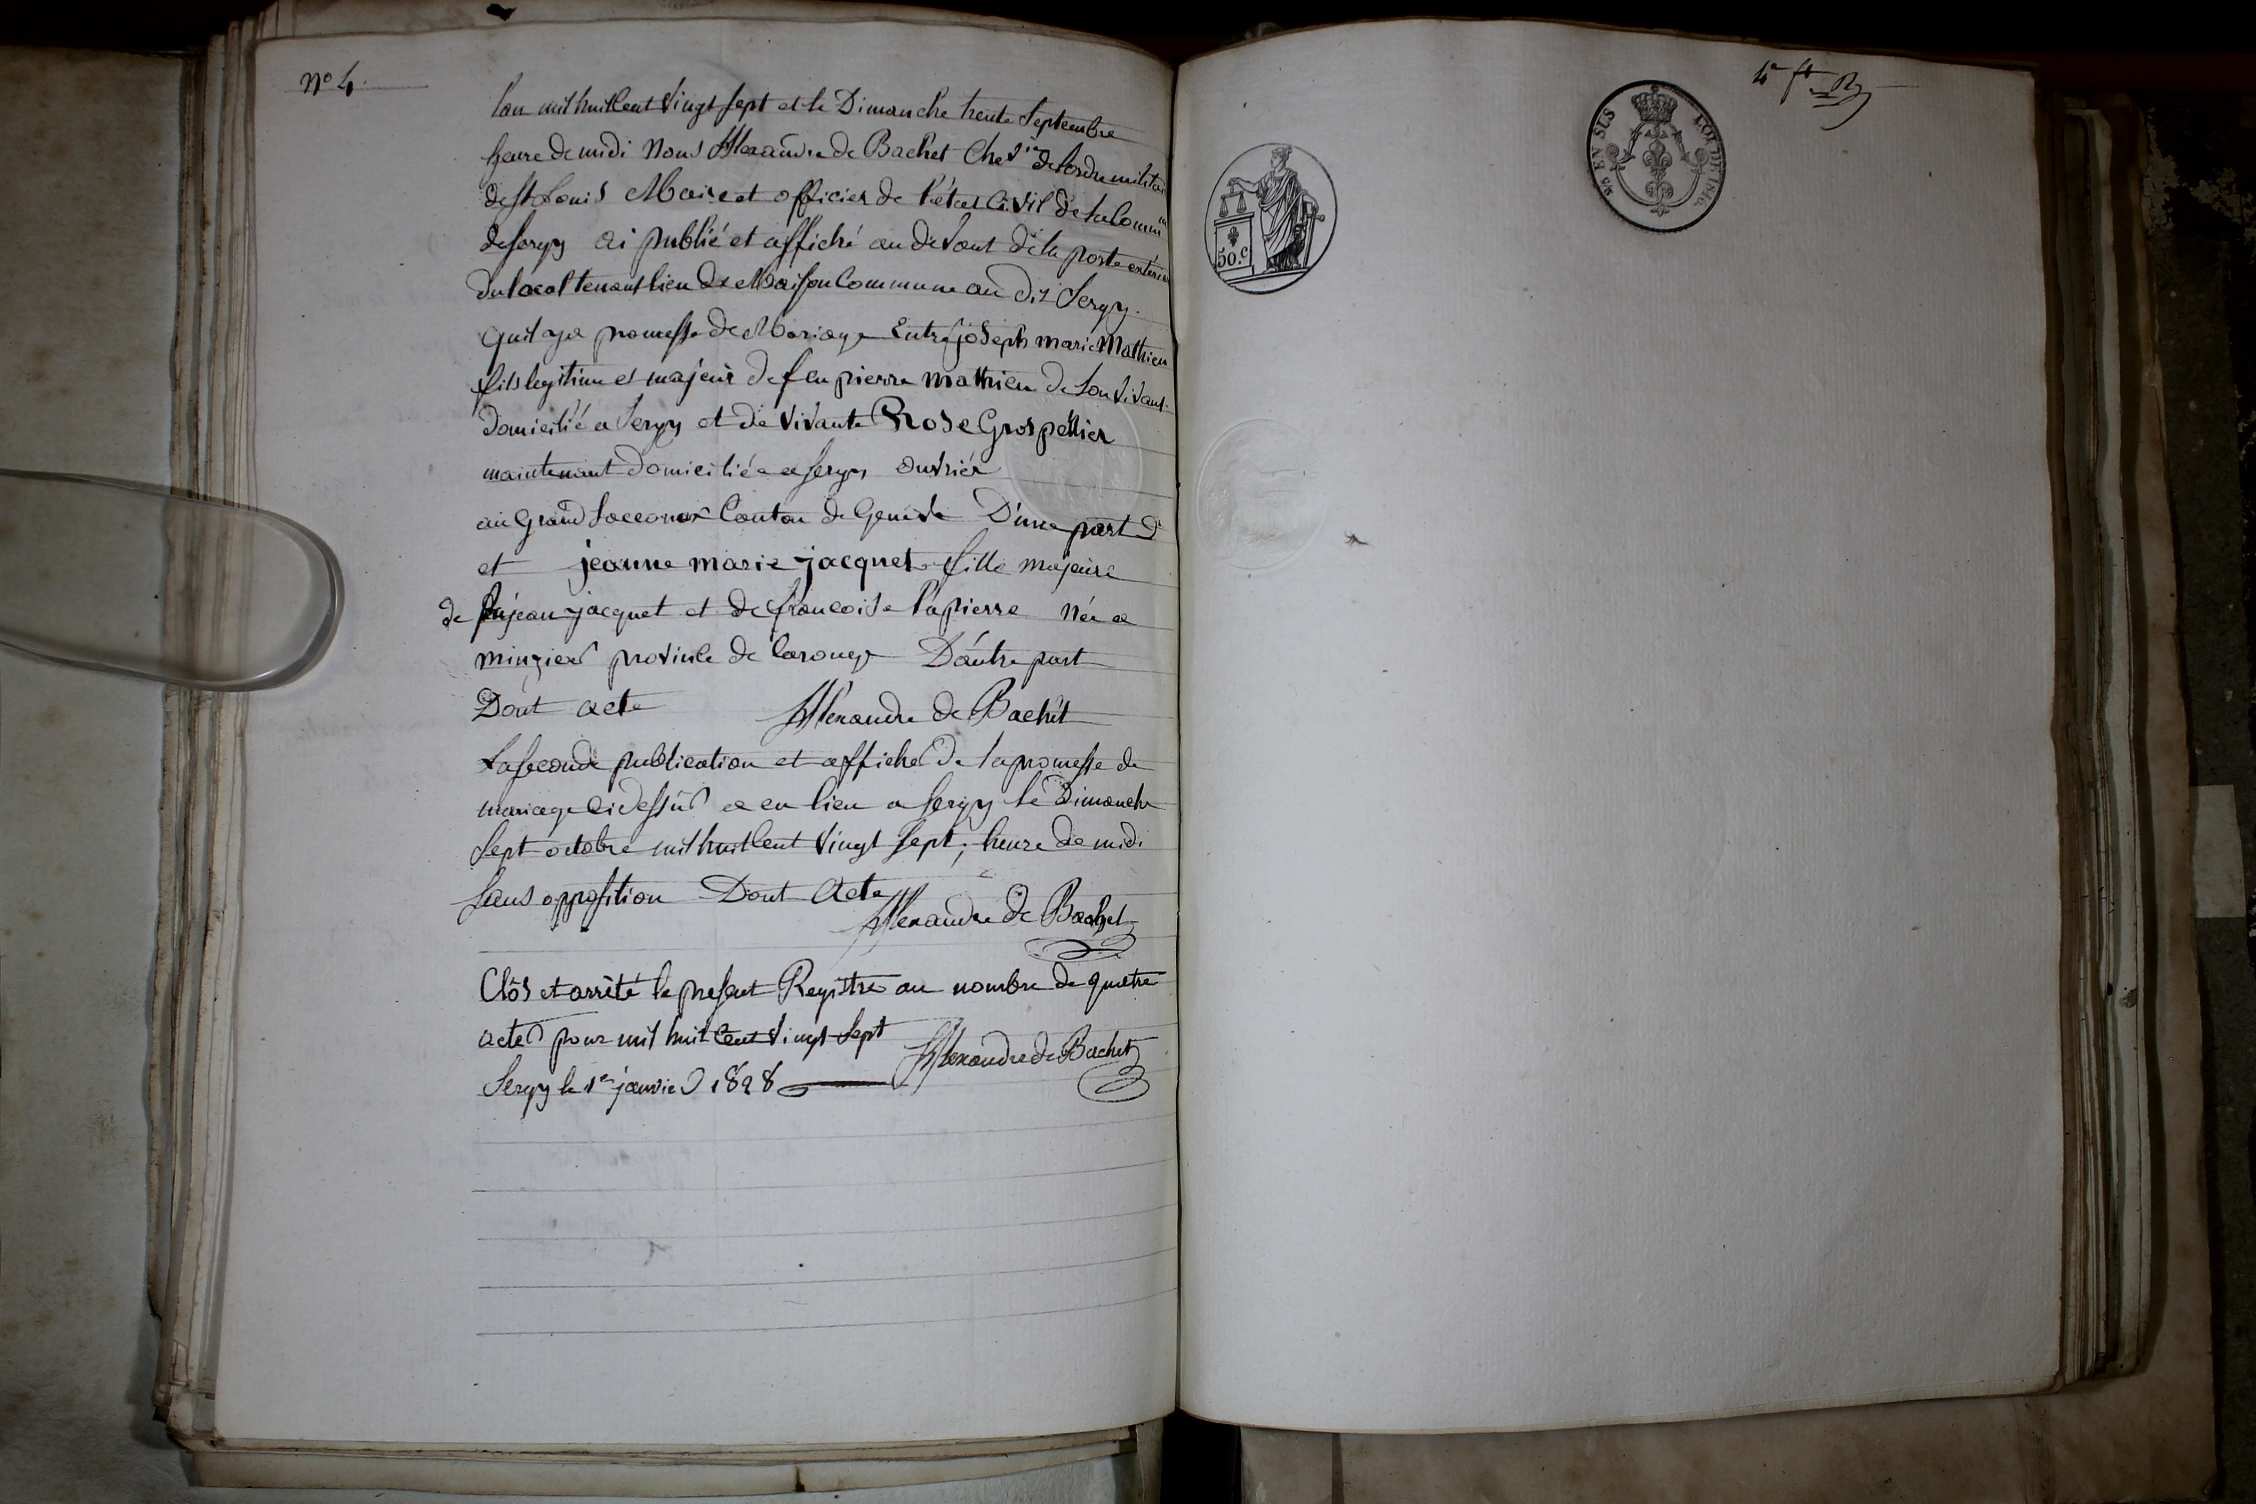 N° 4.
lan mil huit Cent Vingt Sept et le Dimanche trente Septembre
heure de midi Nous Alexandre de Bachet Chevier de lordre militai
de St Louis Maire et officier de l'état Civil de la Commune
de Sergy ai publié et affiché au devant de la porte extérieu
du local tenant lieu de Maison Commune au dit Sergy.
quil aya promesse de Mariage Entre joseph marie Mathieu
fils legitime et majeur de feu pierre mathieu de Son Vivant
domicilié a Sergy et de vivante Rose Grospellier
maintenant domiciliée a Sergy ouvrier
au Grand Sacconex Canton de Genève D'une part
et jeanne marie jacquet fille majeure
de feu jean jacquet et de francoise Lapierre Née a
minzier province de Carouge D'autre part
Dont acte Alexandre de Bachet
La Seconde publication et affiche de la promesse de
mariage ci dessus a eu lieu a Sergy le Dimanche
Sept octobre mil huit Cent Vingt Sept, heure de midi
Sans opposition Dont Acte
Alexandre de Bachet
Clôs et arrêté le present Registre au nombre de quatre
actes pour mil huit Cent Vingt Sept
Sergy le 1er janvier 1828 Alexandre de Bachet
50.C
LOI DE 1816.
EN SUS
4e ft